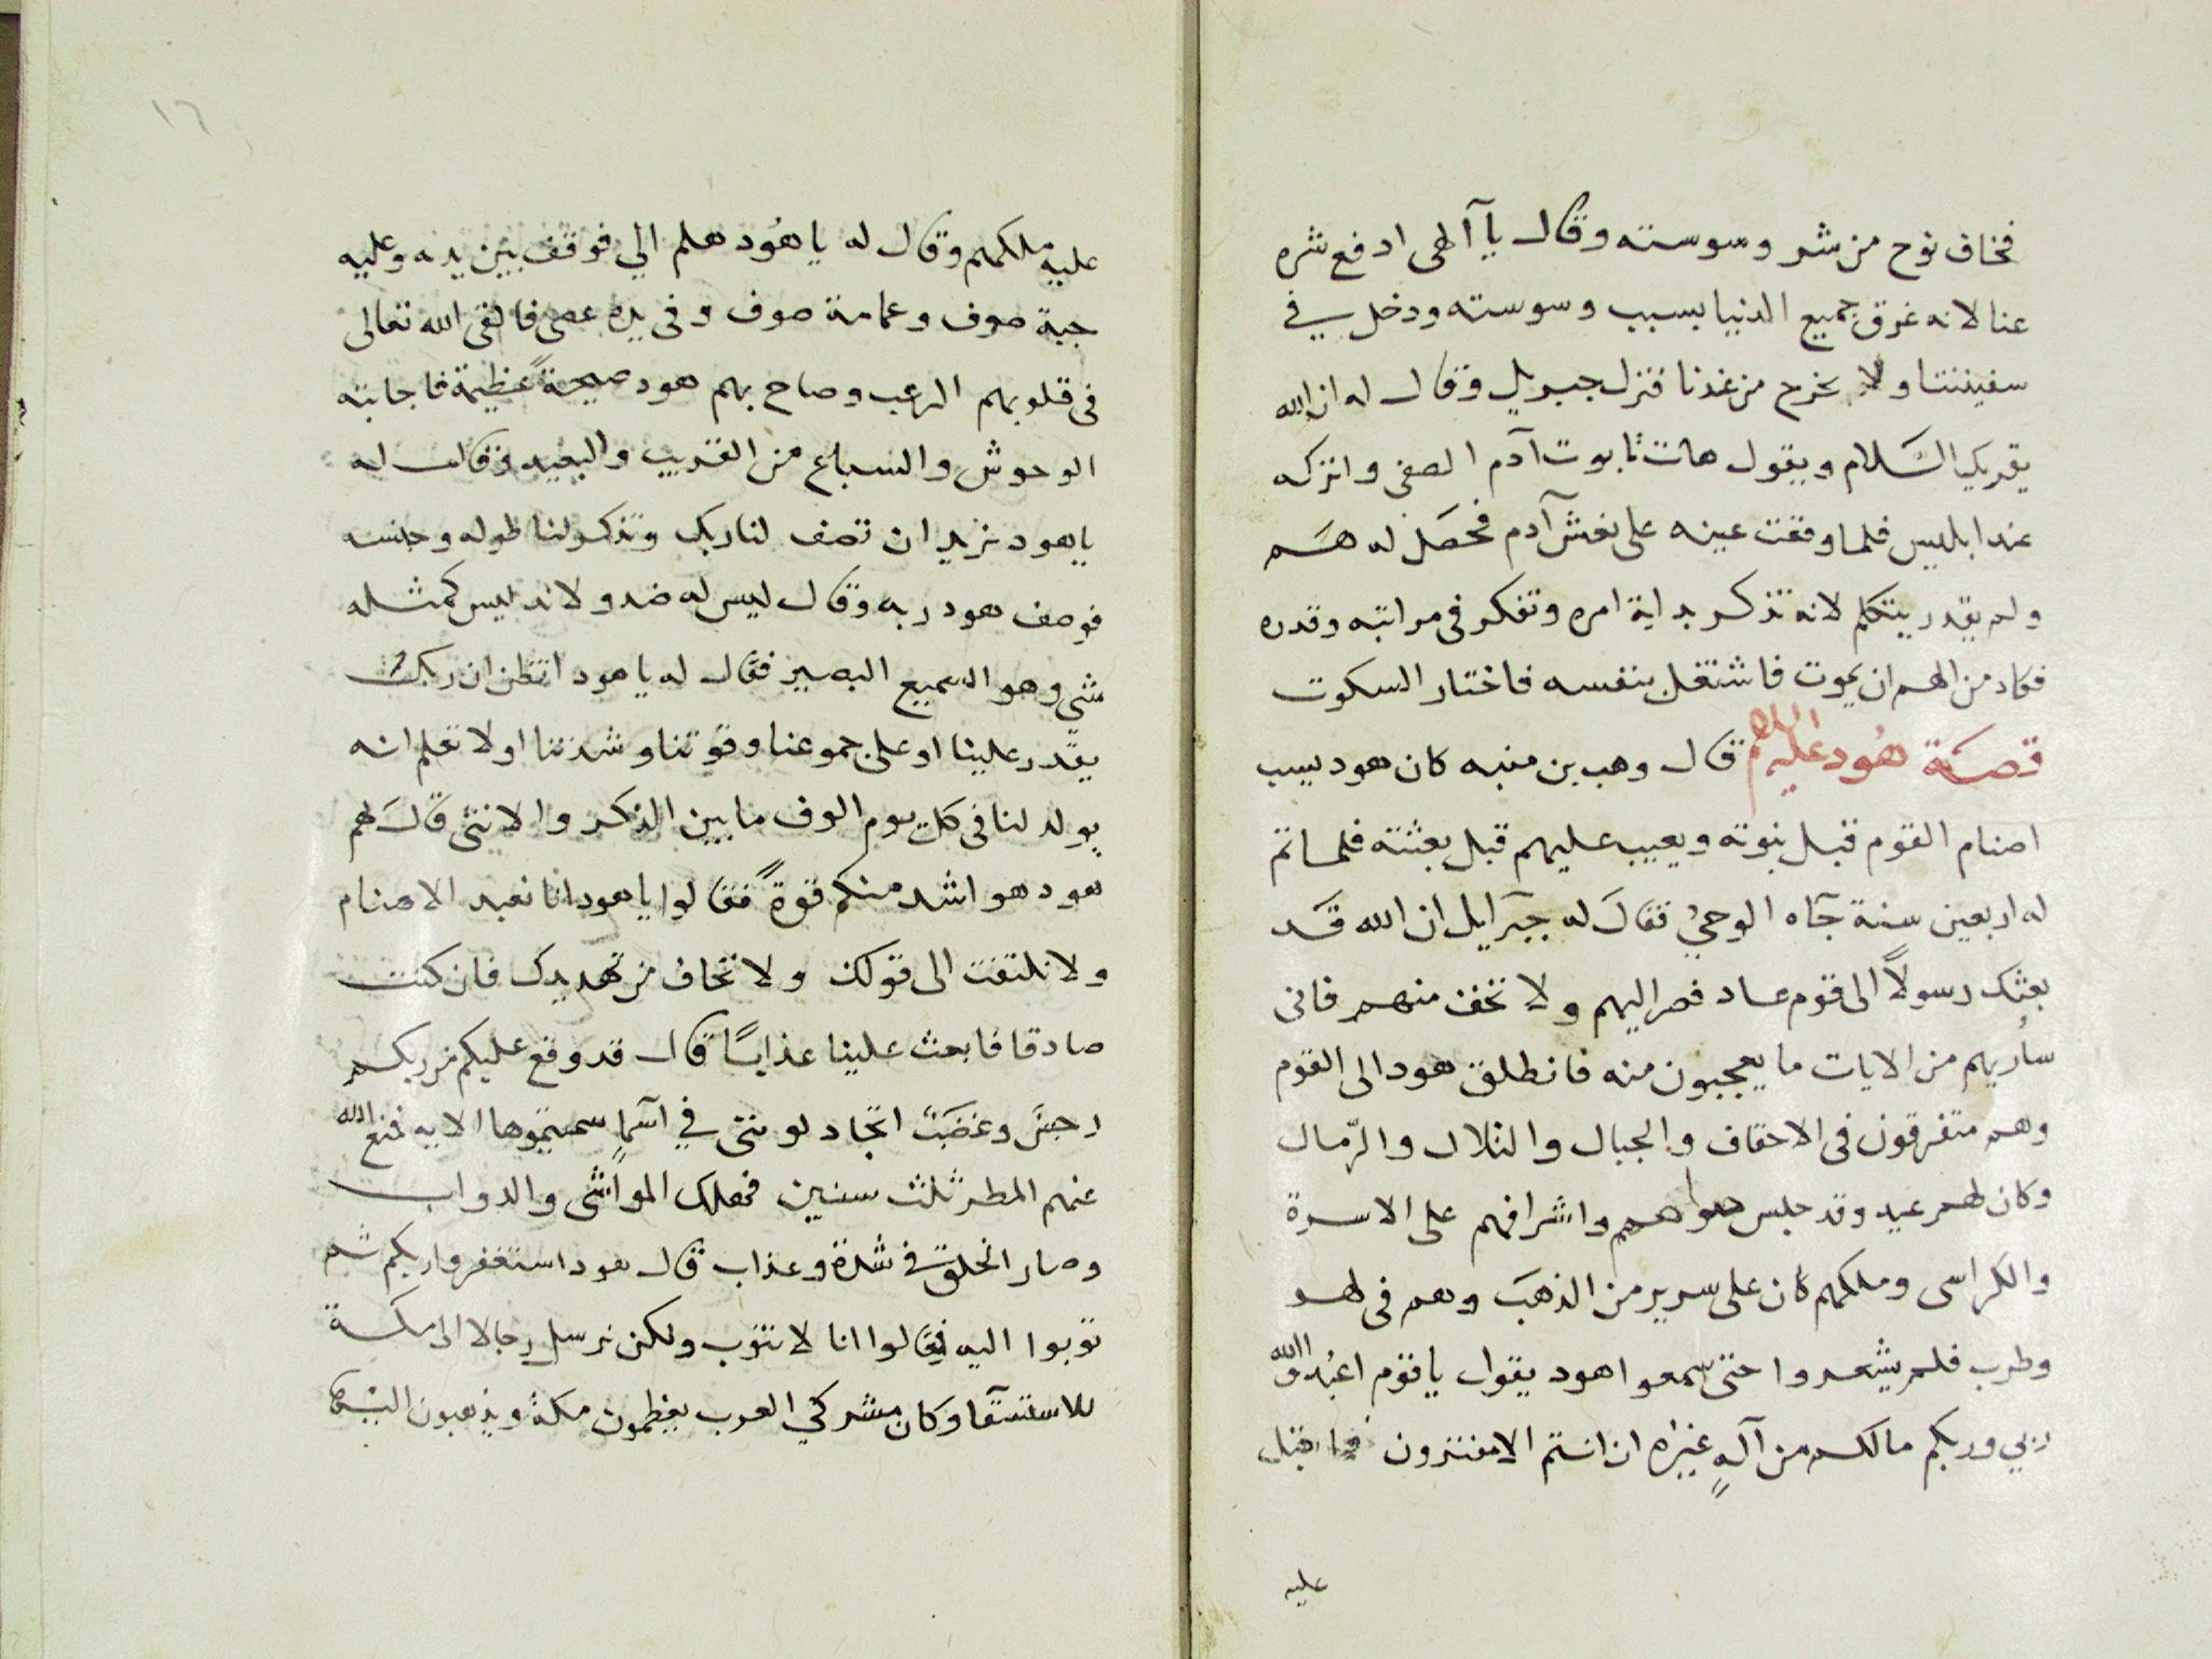 فخاف نوح من شر وسوسته وقال يآ آلهى ادفع شره
عنا لانه غرق جميع الدنيا بسبب وسوسته ودخل في
سفينتنا ولا يخرج من عندنا فنزل جبريل وقال له ان الله
يقريك السَّلام ويقول هات تابوت آدم الصفى واتركه
عند ابليس فلما وقعت عينه على نعش آدم فحصَل له هَم
ولم يقدر يتكلم لانه تذكر بداية امره وتفكر فى مراتبه وقدره
فكاد من الهم ان يموت فاشتغل بنفسه فاختار السكوت
قصَة هُود عليه السلام قال وهب بن منبه كان هود يسب
اصنام القوم قبل نبوته ويعيب عليهم قبل بعثته فلما تم
له اربعين سنة جآه الوحيُ فقالَ له جبرَايل ان الله قَد
بعثك رسولاً الى قوم عاد فصر اليهم ولا تخف منهم فانى
سأريهم من الايات ما يعجبون منه فانطلق هود الى القوم
وهم متفرقون فى الاحقاف والجبال والتلال والرّمال
وكان لهم عيد وقد جلس هو اهم واشرافهم على الاسرة
والكراسى وملكهم كان على سرير من الذهَب وهم فى لهو
وطرب فلم يشعروا حتى سمعوا هود يقول يا قوم اعبُدوا الله
ربي وربكم مالكم من آلهٍ غيره ان انتم الا مفترون فاقبل
عليه
١٦
عليه ملكهم وقال له يا هُود هلم الي فوقف بين يديه وعليه
جبة صوف وعمامة صوف وفى يده عصى فالقى الله تعالى
فى قلوبهم الرعب وصاح بهم هود صيحةً عظيمة فاجابته
الوحوش والسباع من القريب والبعيد وقالت له
يا هود نريد ان تصف لنا ربك وتذكر لنا طوله وجنسه
فوصف هود ربه وقال ليس له ضد ولا ند ليس كمثله
شي وهو السميع البصير فقال له يا هود اتظن ان ربك
يقدر علينا او على جموعنا وقوتنا وشدتنا اولا تعلم انه
يولد لنا فى كل يوم الوف ما بين الذكر والانثى قالَ لهم
هود هو اشد منكم قوةً فقالوا يا هود انا نعبد الاصنام
ولا نلتفت الى قولك ولا نخاف من تهديدك فان كنت
صادقا فابعث علينا عذابًا قال قد وقع عليكم من ربكم
رجسَ وغضَبٌ اتجادلوننى في اسَماٍ سميتموها الايه فمنع الله
عنهم المطر ثلث سنين فهلك المواشى والدواب
وصار الخلق فى شدة وعذاب قال هود استغفروا ربكم ثم
توبوا اليه فقالوا انا لا نتوب ولكن نرسل رجالا الى مكة
للاستسقآ وكان مشركي العرب يعظمون مكة ويذهبون اليها